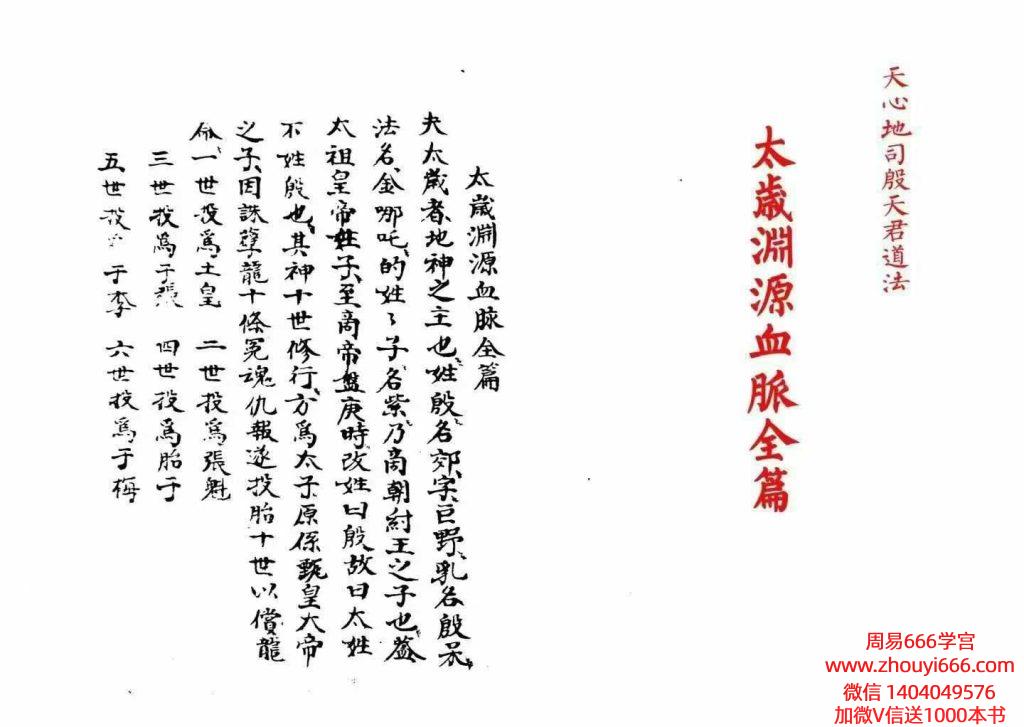 天心地司殷天君道法
太歲淵源血脈全篇
太歲淵源血脉全篇
夫太歲者地神之主也姓殷名郊字巨野乳名殷呆
法名金哪吒的姓々子名紫乃商朝紂王之子也蓋
太祖皇帝姓子至商帝盤庚時改姓曰殷故曰太姓
不姓殷也其神十世修行方為太子原係甄皇大帝
之子因誅孽龍十條冤魂仇報遂投胎十世以償龍
命一世投爲土皇 二世投爲張魁
三世投爲于張 四世投爲胎于
五世投 于李 六世投爲于梅
周易666学宫
www.zhouyi666.com
微信 1404049576
加微V信送1000本书